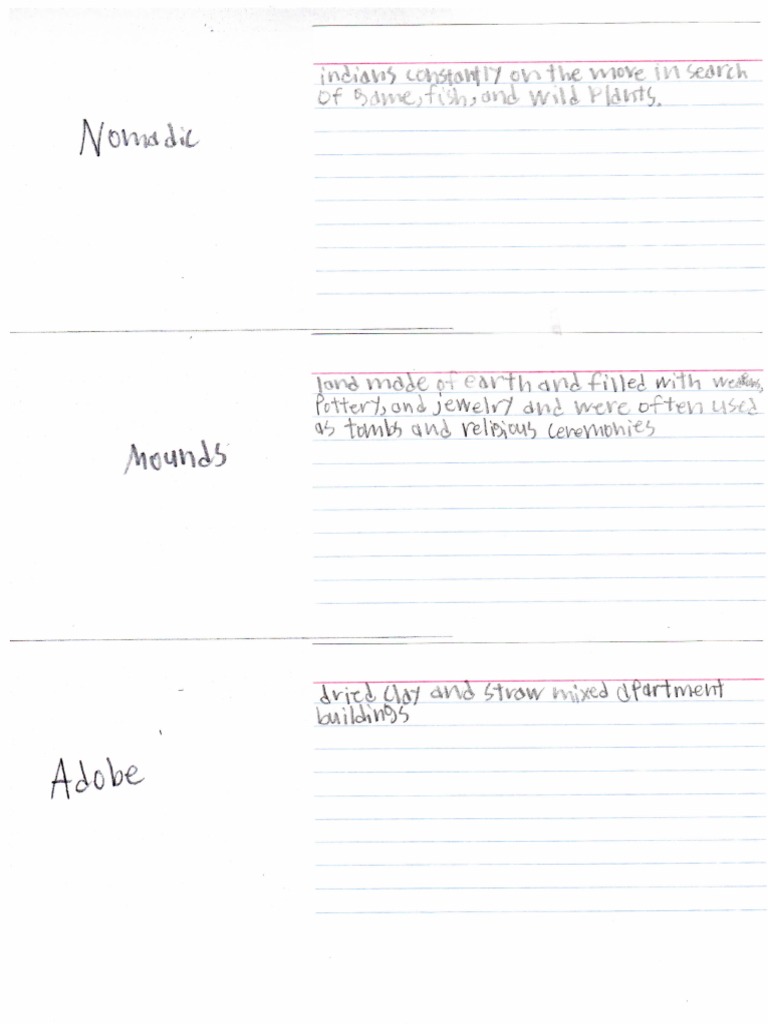 Nomadic
indians constantly on the move in search
of game, fish, and wild plants.
Mounds
land made of earth and filled with weapons,
Pottery, and jewelry and were often used
as tombs and religious ceremonies
Adobe
dried clay and straw mixed apartment
buildings